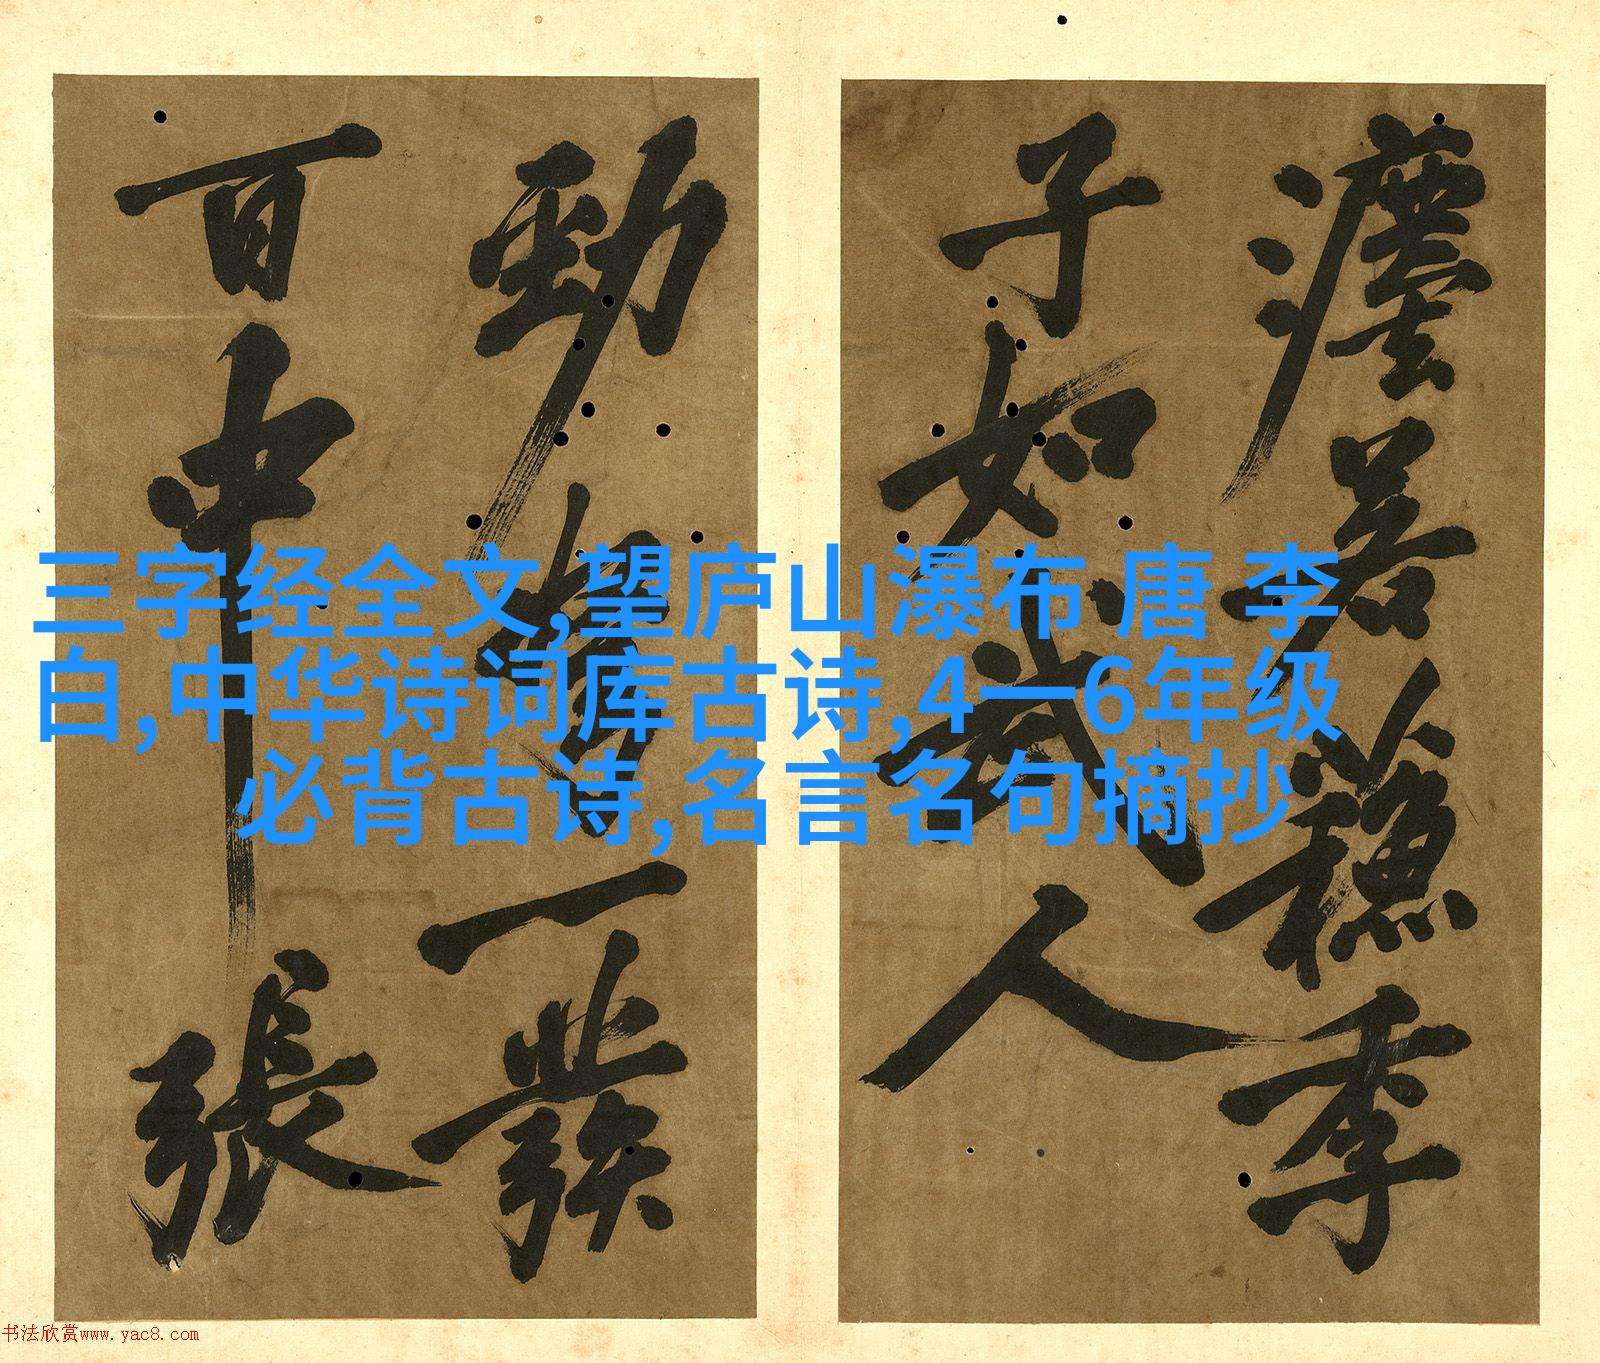 若穩季
子如武人
勁一發
百中張
三字经全文,望庐山瀑布 唐 李
白,中华诗词库古诗,4一6年级
必背古诗,名言名句摘抄
书法欣赏www.yac8.com